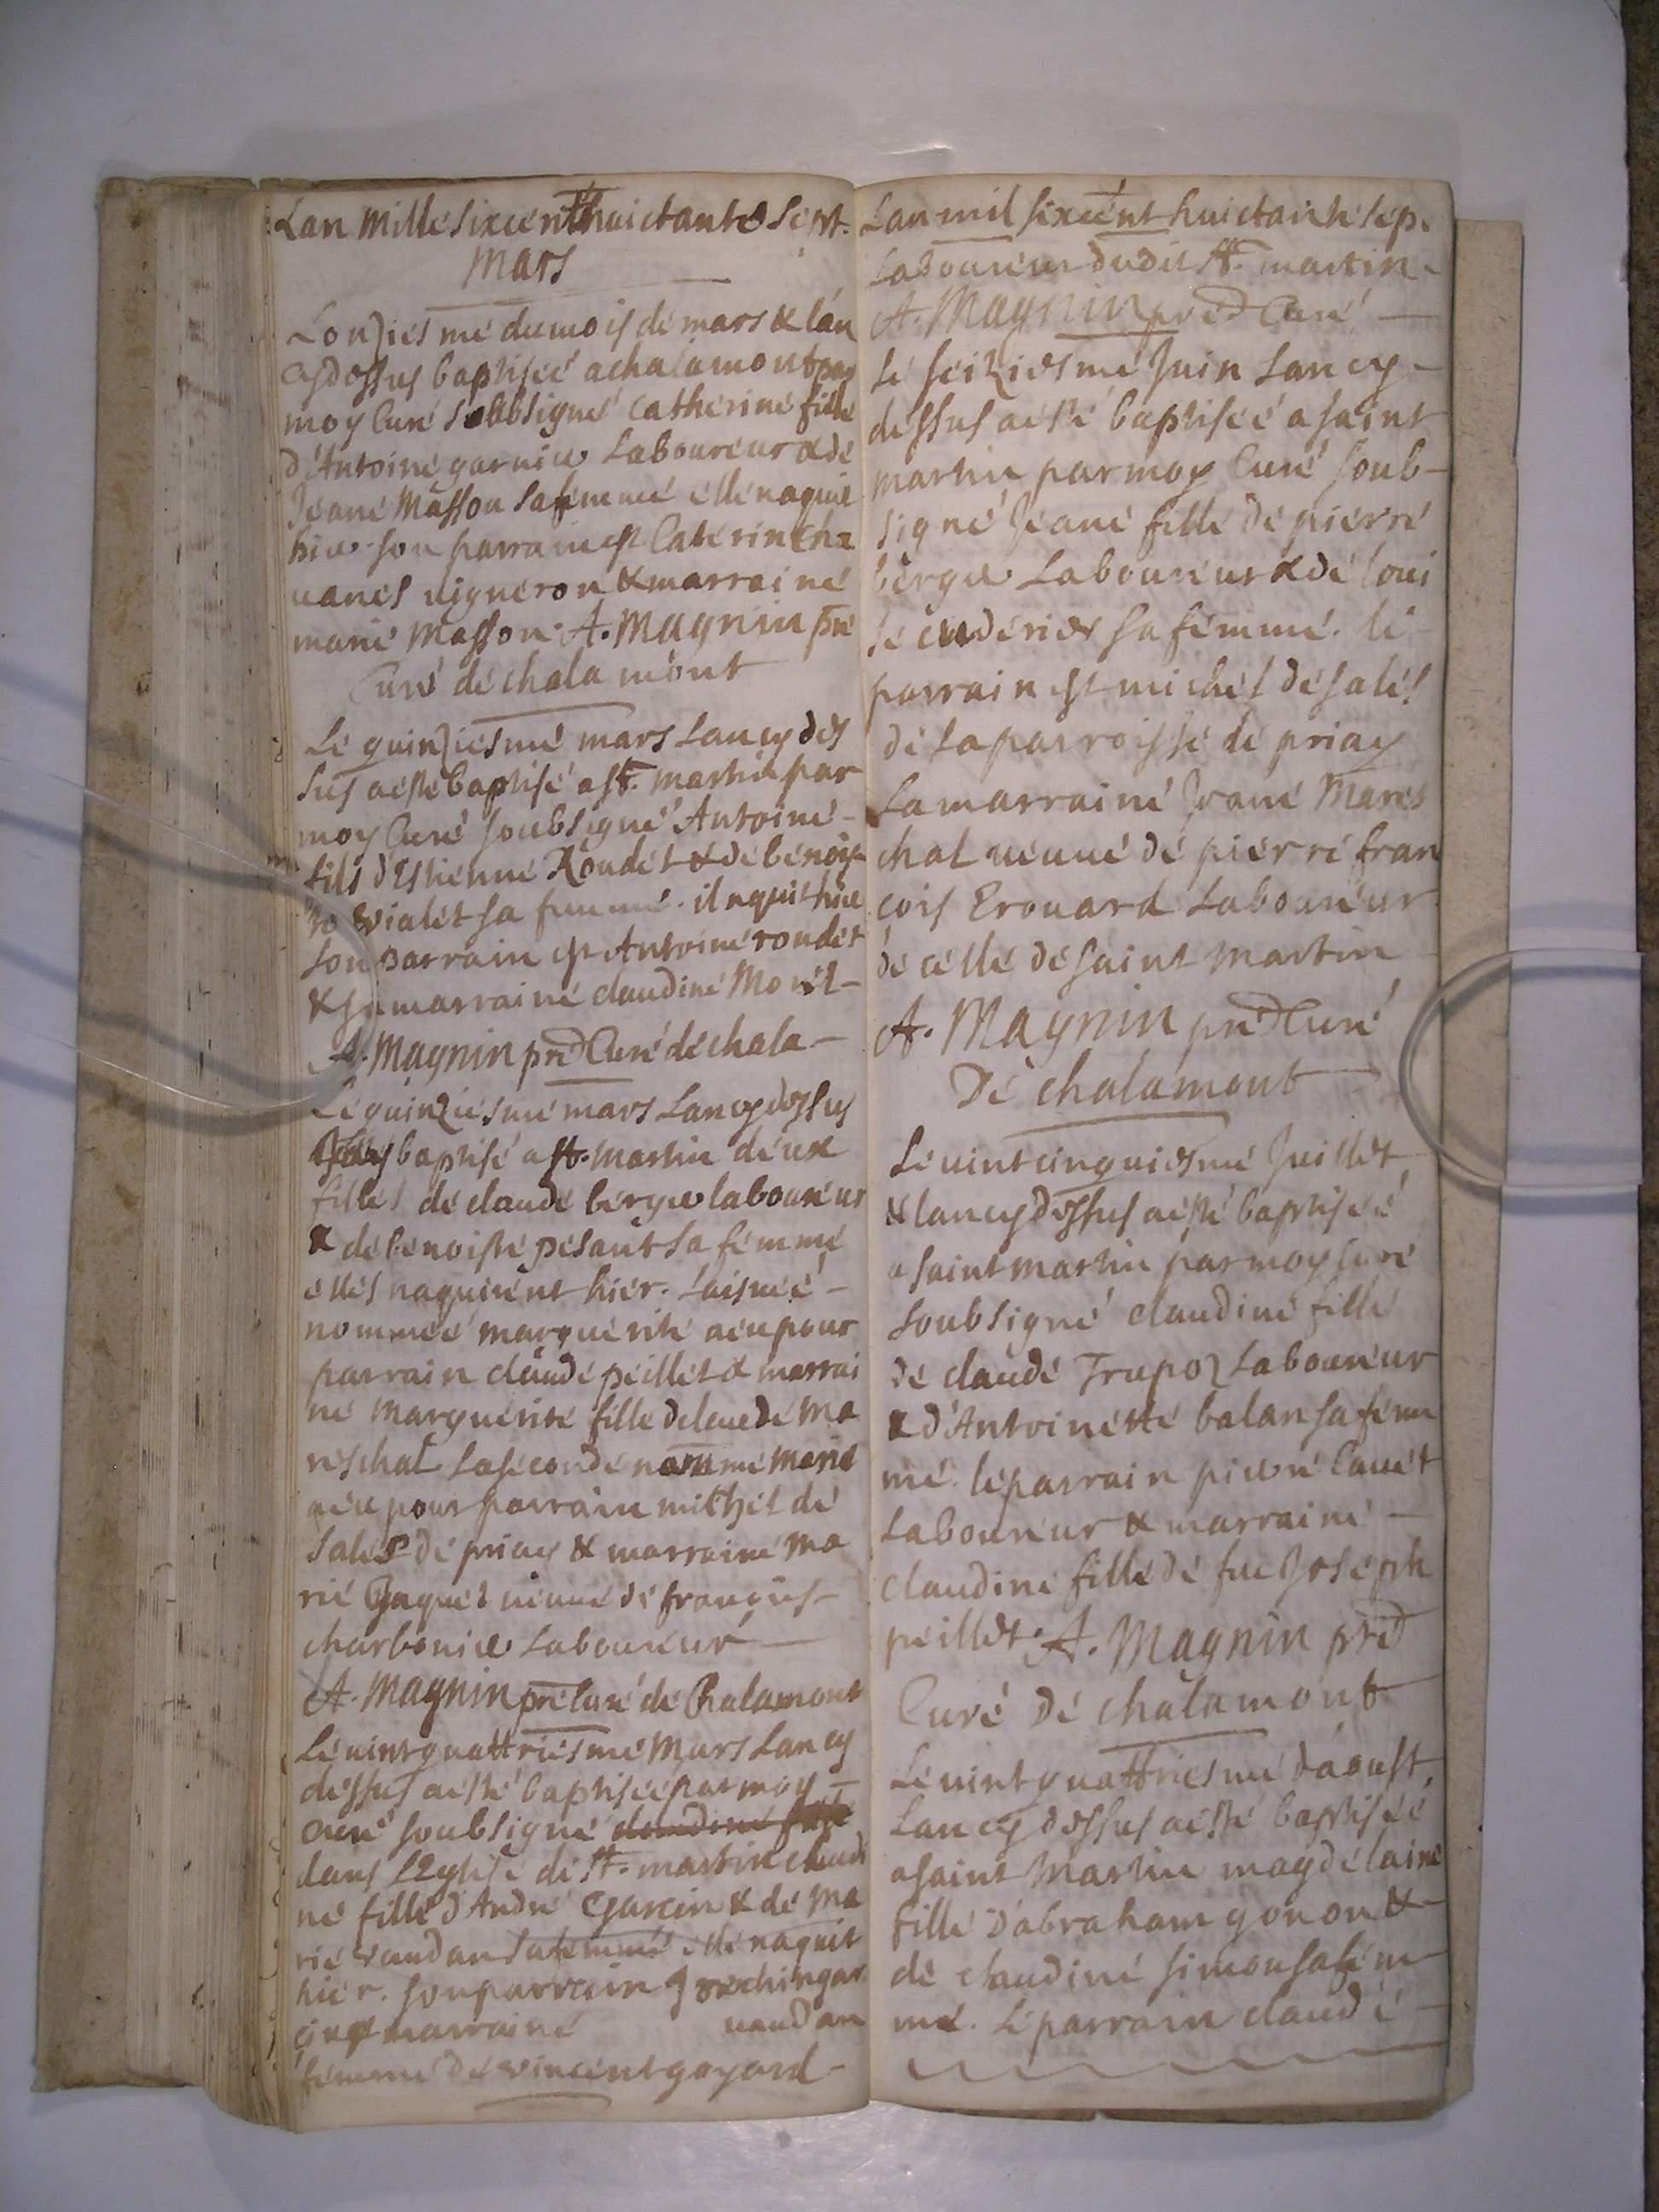 Lan mille sixcent huictante sept.
Mars
Lonziesme du mois de mars & l'an
cydessus baptiseé a chalamont par
moy Curé soubsigné catherine fille
d'Antoine garnier Laboureur & de
Jeane Masson sa femme elle naquit
hier son parrain est Caterin Cha
uanes uigneron & marraine
marie Masson. A. Magnin pre
Curé de chalamont
Le quinziesme mars Lancy des
sus aesté baptisé a st. martin par
moy Curé soubsigné Antoine
fils d'Estienne Roudet & de benoi
te Vialet sa femme. il naquit hier
son parrain est Antoine roudet
& sa marraine claudine Morel
A. Magnin pred Curé de chala
Le quinziesme mars Lancydessus
baptisé a st. martin deux
filles de claude berger laboureur
& de benoiste pesant sa femme
elles naquirent hier. Laisneé
nommeé marguerite aeu pour
parrain claude peillet & marrai
ne Marguerite fille de claude Ma
reschal La seconde nommé marie
aeu pour parrain michel de
Sales de priay & marraine ma
rie Jaquet ueuue de françois
charbonier Laboureur
A. Magnin pre Curé de Chalamont
Le uintquattriesme Mars Lancy
dessus aesté baptiseé par moy
curé soubsigné claudine fille
dans L'Eglise de st. martin claudi
ne fille d'André Garcin & de Ma
rie vaudan sa femme elle naquit
hier. son parrain gar
cin & marraine uaudan
femme de vincent goyard
Lan mil sixcent huictante sep.
Laboureur dudit st. martin
A. Magnin pred Curé
Le seiziesme Juin Lancy
dessus aesté baptiseé a saint
martin par moy Curé soub
signé Jeane fille de pierre
berger Laboureur & de loui
se sa femme. le
parrain est michel de sales
de la parroisse de priay
La marraine Jeane Mares
chal ueuue de pierre fran
çois Erouard Laboureur
de celle de saint martin
A. Magnin pred Curé
De chalamont
Le uintcinquiesme Juillet
& lancydessus aesté baptiseé
a saint martin par moy curé
soubsigné claudine fille
de claude Trupoz Laboureur
& d'Antoinette balan sa fem
me. le parrain pierre Cauet
Laboureur & marraine
claudine fille de feu Joseph
peillet. A. Magnin pred
Curé De chalamont
Le uintquattriesme d'aoust
Lancy dessus aesté baptiseé
a saint Martin magdelaine
fille d'abraham gonon &
de claudine simon sa fem
me. Le parrain claude